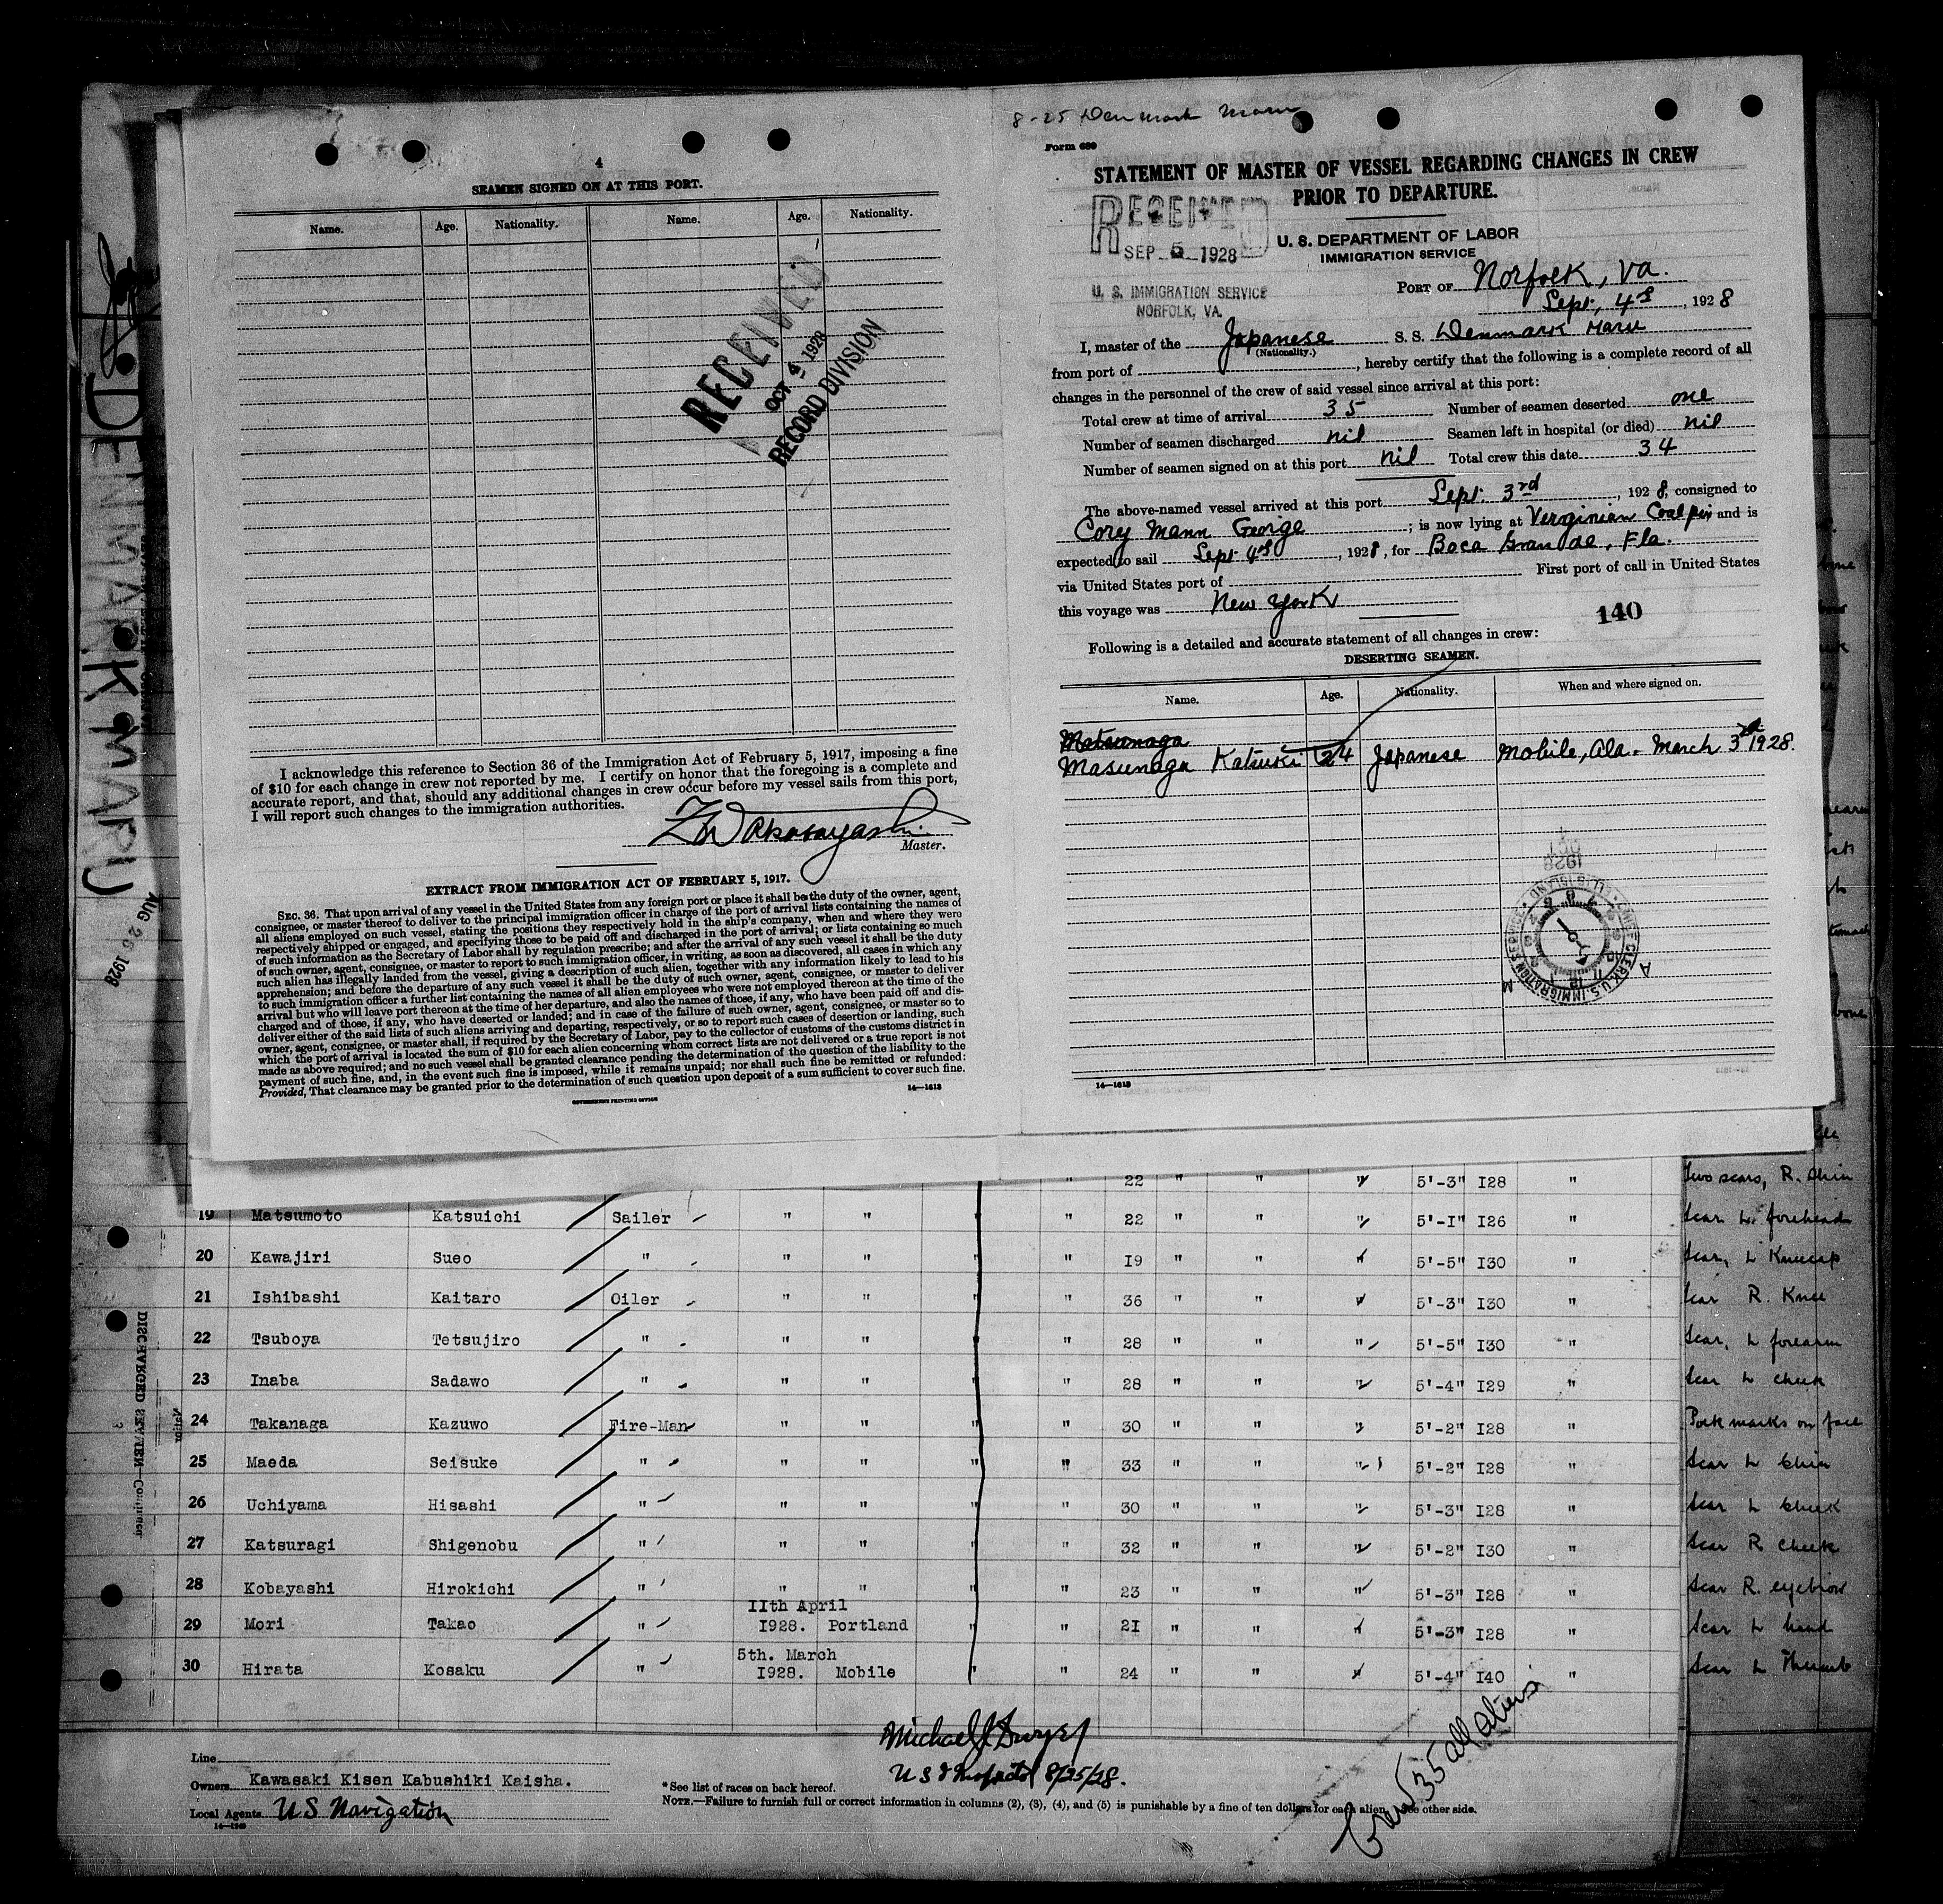 DENMARK MARU
AUG 25 1928
DISCHARGED SEAMEN—Continued
4
SEAMEN SIGNED ON AT THIS PORT.
Name. Age. Nationality. Name. Age. Nationality.
RECEIVED
OCT 4 1928
RECORD DIVISION
I acknowledge this reference to Section 36 of the Immigration Act of February 5, 1917, imposing a fine
of $10 for each change in crew not reported by me. I certify on honor that the foregoing is a complete and
accurate report, and that, should any additional changes in crew occur before my vessel sails from this port,
I will report such changes to the immigration authorities.
Master.
EXTRACT FROM IMMIGRATION ACT OF FEBRUARY 5, 1917.
SEC. 36. That upon arrival of any vessel in the United States from any foreign port or place it shall be the duty of the owner, agent,
consignee, or master thereof to deliver to the principal immigration officer in charge of the port of arrival lists containing the names of
all aliens employed on such vessel, stating the positions they respectively hold in the ship's company, when and where they were
respectively shipped or engaged, and specifying those to be paid off and discharged in the port of arrival; or lists containing so much
of such information as the Secretary of Labor shall by regulation prescribe; and after the arrival of any such vessel it shall be the duty
of such owner, agent, consignee, or master to report to such immigration officer, in writing, as soon as discovered, all cases in which any
such alien has illegally landed from the vessel, giving a description of such alien, together with any information likely to lead to his
apprehension; and before the departure of any such vessel it shall be the duty of such owner, agent, consignee, or master to deliver
to such immigration officer a further list containing the names of all alien employees who were not employed thereon at the time of the
arrival but who will leave port thereon at the time of her departure, and also the names of those, if any, who have been paid off and dis-
charged and of those, if any, who have deserted or landed; and in case of the failure of such owner, agent, consignee, or master so to
deliver either of the said lists of such aliens arriving and departing, respectively, or so to report such cases of desertion or landing, such
owner, agent, consignee, or master shall, if required by the Secretary of Labor, pay to the collector of customs of the customs district in
which the port of arrival is located the sum of $10 for each alien concerning whom correct lists are not delivered or a true report is not
made as above required; and no such vessel shall be granted clearance pending the determination of the question of the liability to the
payment of such fine, and, in the event such fine is imposed, while it remains unpaid; nor shall such fine be remitted or refunded:
Provided, That clearance may be granted prior to the determination of such question upon deposit of a sum sufficient to cover such fine.
14—1613
GOVERNMENT PRINTING OFFICE
8-25 Denmark Maru
Form 689
STATEMENT OF MASTER OF VESSEL REGARDING CHANGES IN CREW
PRIOR TO DEPARTURE.
RECEIVED
SEP 5 1928
U. S. IMMIGRATION SERVICE
NORFOLK, VA.
U. S. DEPARTMENT OF LABOR
IMMIGRATION SERVICE
PORT OF Norfolk, Va.
Sept, 4th, 1928
I, master of the Japanese S. S. Denmark Maru
(Nationality.)
from port of , hereby certify that the following is a complete record of all
changes in the personnel of the crew of said vessel since arrival at this port:
Total crew at time of arrival 35 Number of seamen deserted one
Number of seamen discharged nil Seamen left in hospital (or died) nil
Number of seamen signed on at this port nil Total crew this date 34
The above-named vessel arrived at this port Sept. 3rd, 1928, consigned to
Cory Mann George ; is now lying at Verginian Coal pir and is
expected to sail Sept 4th, 1928, for Boca Grande, Fla.
via United States port of First port of call in United States
this voyage was New York
140
Following is a detailed and accurate statement of all changes in crew:
DESERTING SEAMEN.
Name. Age. Nationality. When and where signed on.
Matsunaga
Masunaga Katsuki 24 Japanese Mobile, Ala. March 3rd 1928.
14—1613
Two scars, R. Shin
22 " " " 5'-3" I28 "
19 Matsumoto Katsuichi Sailer " " " " 22 " " " 5'-I" I26 " Scar L. forehead
20 Kawajiri Sueo " " " " " I9 " " 5'-5" I30 " Scar, L Kneecap
21 Ishibashi Kaitaro Oiler " " " " 36 " " " 5'-3" I30 " Scar R. Knee
22 Tsuboya Tetsujiro " " " " " 28 " " " 5'-5" I30 " Scar, L forearm
23 Inaba Sadawo " " " " " 28 " " " 5'-4" I29 " Scar L cheek
24 Takanaga Kazuwo Fire-Man " " " " 30 " " " 5'-2" I28 " Pock marks on face
25 Maeda Seisuke " " " " " 33 " " " 5'-2" I28 " Scar L Chin
26 Uchiyama Hisashi " " " " " 30 " " " 5'-3" I28 " Scar L Cheek
27 Katsuragi Shigenobu " " " " " 32 " " " 5'-2" I30 " Scar R Cheek
28 Kobayashi Hirokichi " " " " " 23 " " " 5'-3" I28 " Scar R. eyebrow
IIth April
29 Mori Takao " I928. Portland " " 2I " " 5'-3" I28 " Scar L hand
5th. March
30 Hirata Kosaku " I928. Mobile " " 24 " " 5'-4" I40 " Scar L Thumb
Line
Owners Kawasaki Kisen Kabushiki Kaisha.
Local Agents US Navigation
US I Inspector 8/25/28.
*See list of races on back hereof.
NOTE.—Failure to furnish full or correct information in columns (2), (3), (4), and (5) is punishable by a fine of ten dollars for each alien. See other side.
Crew 35 all aliens